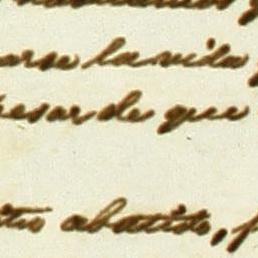 arse la vida
pesar de que
itu abatido,